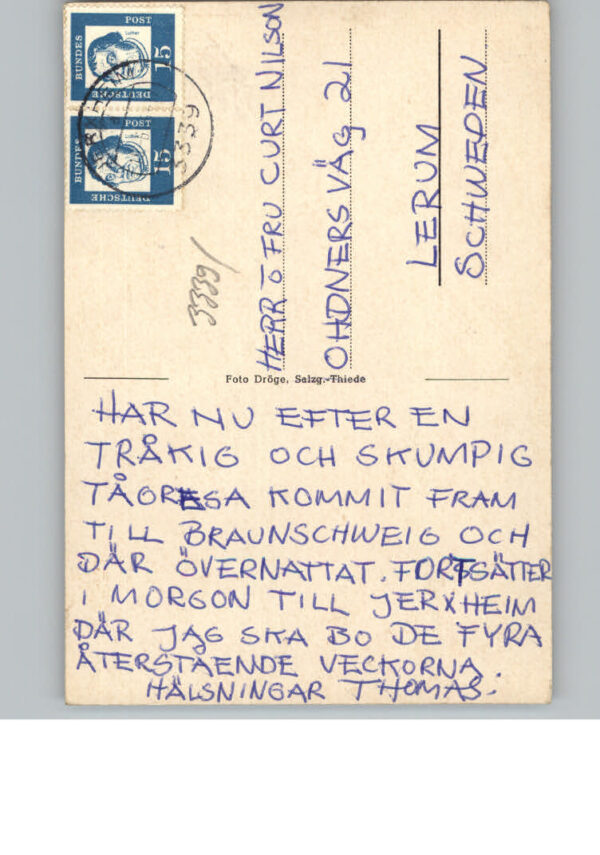 DEUTSCHE
BUNDES
POST
15
Luther
DEUTSCHE
BUNDES
POST
15
3339
3339/
HERR O FRU CURT NILSON
OHDNERS VÄG 21
LERUM
SCHWEDEN
Foto Dröge, Salzg.-Thiede
HAR NU EFTER EN
TRÅKIG OCH SKUMPIG
TÅGRESA KOMMIT FRAM
TILL BRAUNSCHWEIG OCH
DÄR ÖVERNATTAT. FORTSÄTTER
I MORGON TILL JERXHEIM
DÄR JAG SKA BO DE FYRA
ÅTERSTÅENDE VECKORNA.
HÄLSNINGAR THOMAS.